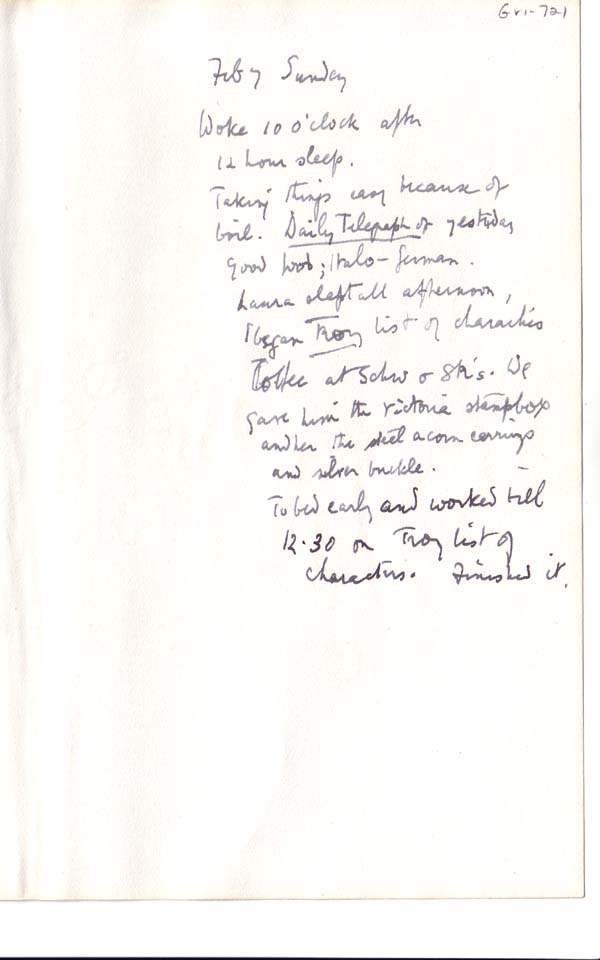 GVI-721
Feb 7 Sunday
Woke 10 o'clock after
12 hour sleep.
Taking things easy because of
boil. Daily Telegraph of yesterday
good book; Italo-German.
Laura slept all afternoon,
I began Troy list of characters
Coffee at Schw o Str's. We
gave him the victoria stampbox
and her the steel acorn earrings
and silver buckle.
To bed early and worked till
12.30 on Troy list of
characters. Finished it.